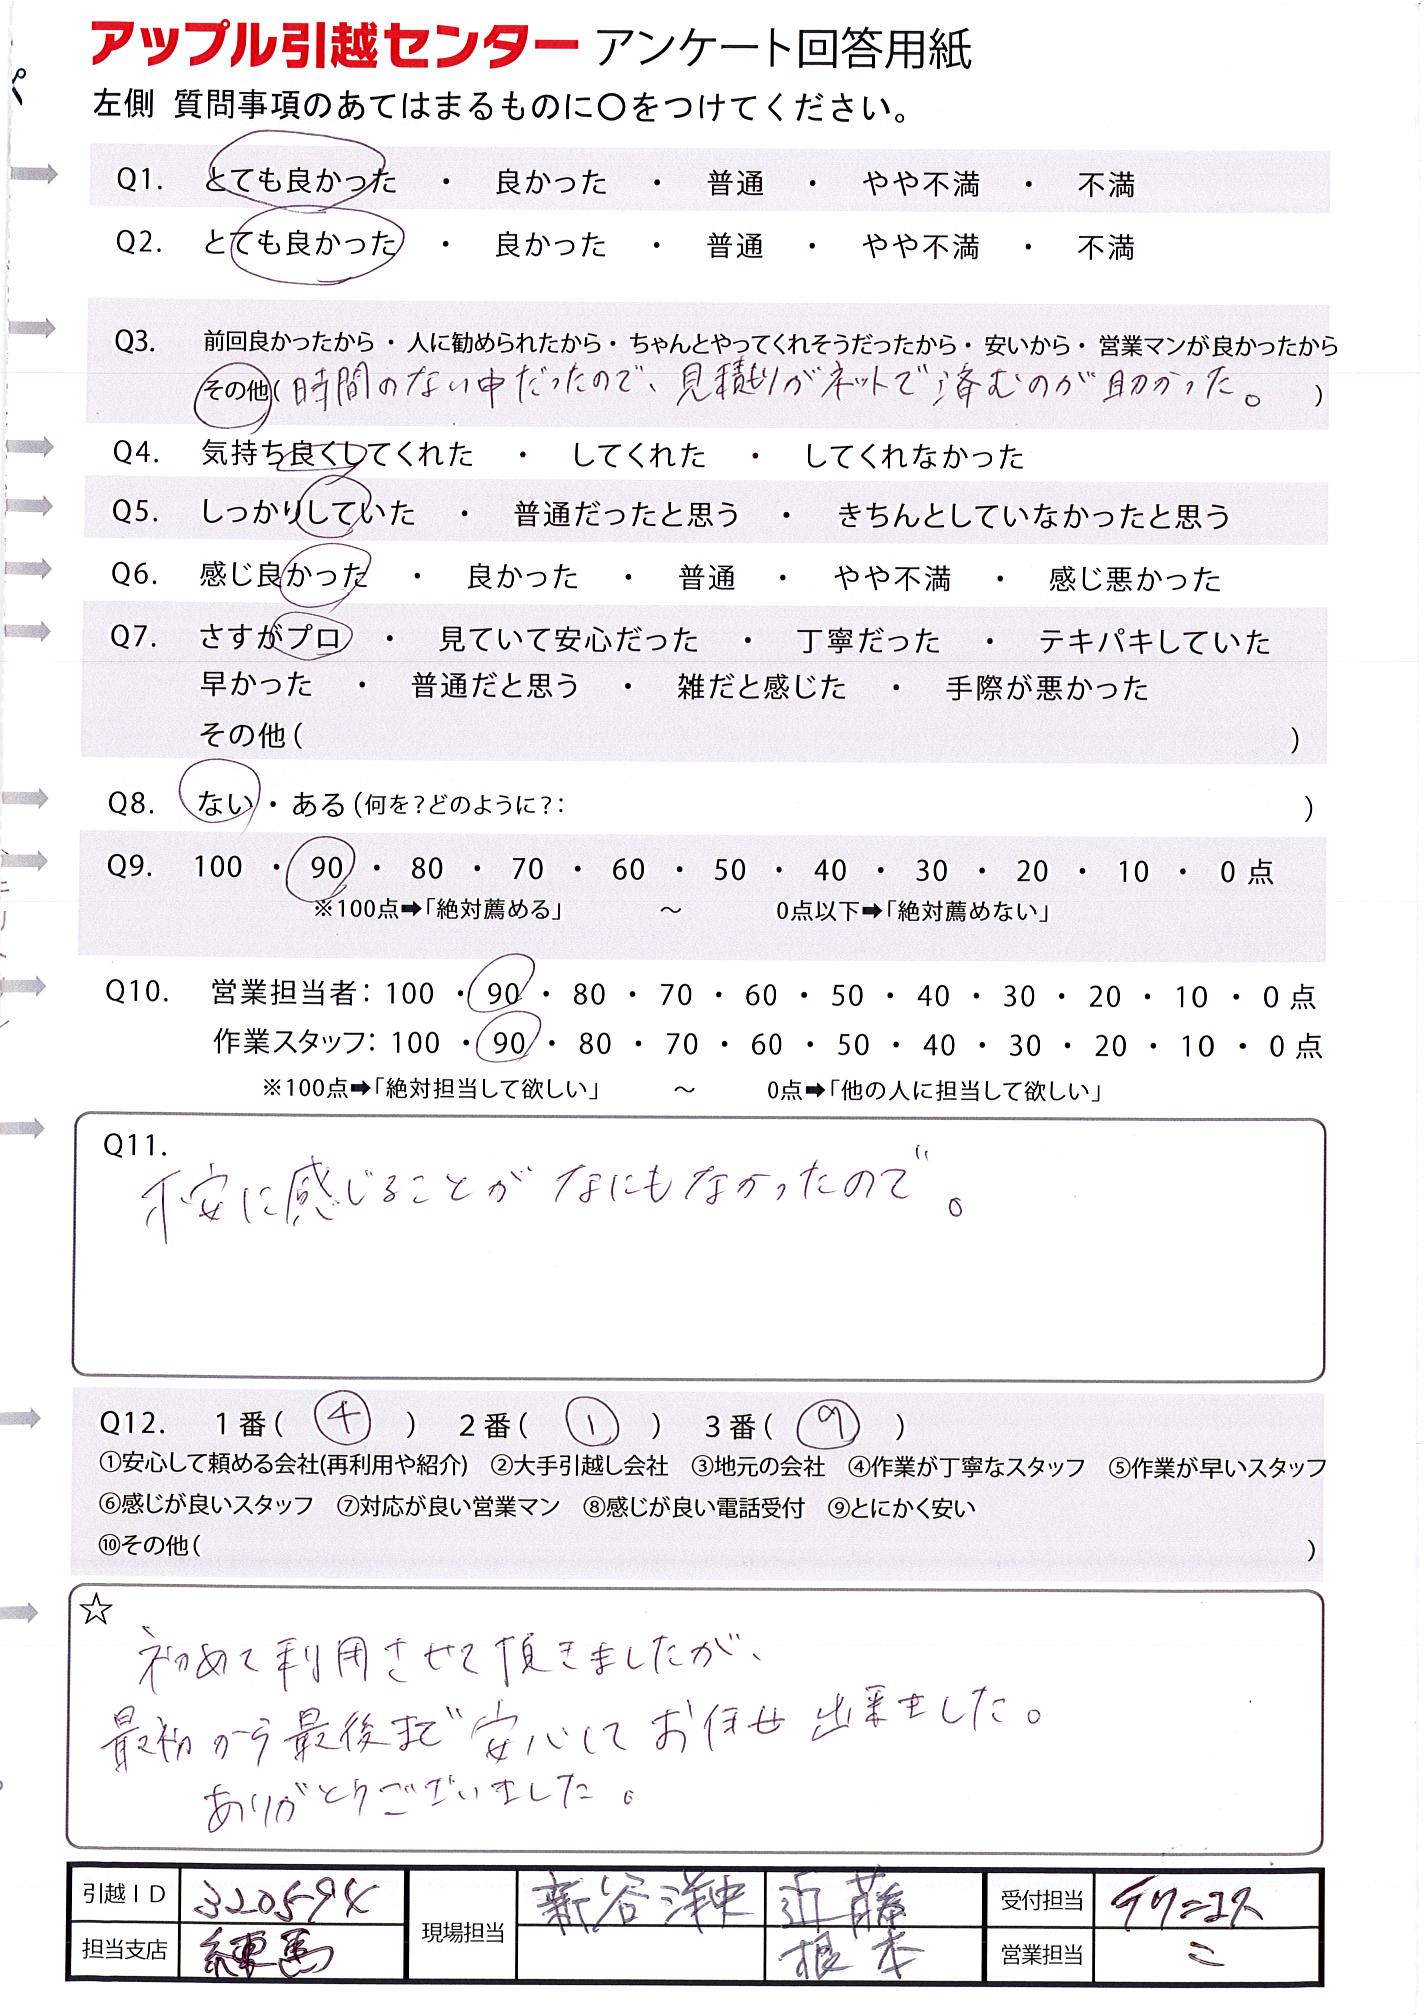 アップル引越センター アンケート回答用紙
左側 質問事項のあてはまるものに〇をつけてください。
Q1. とても良かった ・ 良かった ・ 普通 ・ やや不満 ・ 不満
Q2. とても良かった ・ 良かった ・ 普通 ・ やや不満 ・ 不満
Q3. 前回良かったから・人に勧められたから・ちゃんとやってくれそうだったから・安いから・営業マンが良かったから
その他(時間のない中だったので、見積もりがネットで済むのが助かった。)
Q4. 気持ち良くしてくれた ・ してくれた ・ してくれなかった
Q5. しっかりしていた ・ 普通だったと思う ・ きちんとしていなかったと思う
Q6. 感じ良かった ・ 良かった ・ 普通 ・ やや不満 ・ 感じ悪かった
Q7. さすがプロ ・ 見ていて安心だった ・ 丁寧だった ・ テキパキしていた
早かった ・ 普通だと思う ・ 雑だと感じた ・ 手際が悪かった
その他( )
Q8. ない・ある(何を?どのように?: )
Q9. 100 ・ 90 ・ 80 ・ 70 ・ 60 ・ 50 ・ 40 ・ 30 ・ 20 ・ 10 ・ 0点
※100点➡「絶対薦める」 ～ 0点以下➡「絶対薦めない」
Q10. 営業担当者: 100 ・ 90 ・ 80 ・ 70 ・ 60 ・ 50 ・ 40 ・ 30 ・ 20 ・ 10 ・ 0点
作業スタッフ: 100 ・ 90 ・ 80 ・ 70 ・ 60 ・ 50 ・ 40 ・ 30 ・ 20 ・ 10 ・ 0点
※100点➡「絶対担当して欲しい」 ～ 0点➡「他の人に担当して欲しい」
Q11.
不安に感じることがなにもなかったので。
Q12. 1番( 4 ) 2番( 1 ) 3番( 9 )
①安心して頼める会社(再利用や紹介) ②大手引越し会社 ③地元の会社 ④作業が丁寧なスタッフ ⑤作業が早いスタッフ
⑥感じが良いスタッフ ⑦対応が良い営業マン ⑧感じが良い電話受付 ⑨とにかく安い
⑩その他( )
☆
初めて利用させて頂きましたが、
最初から最後まで安心してお任せ出来ました。
ありがとうございました。
引越ID 現場担当 新谷洋史 近藤 受付担当
担当支店 練馬 根本 営業担当